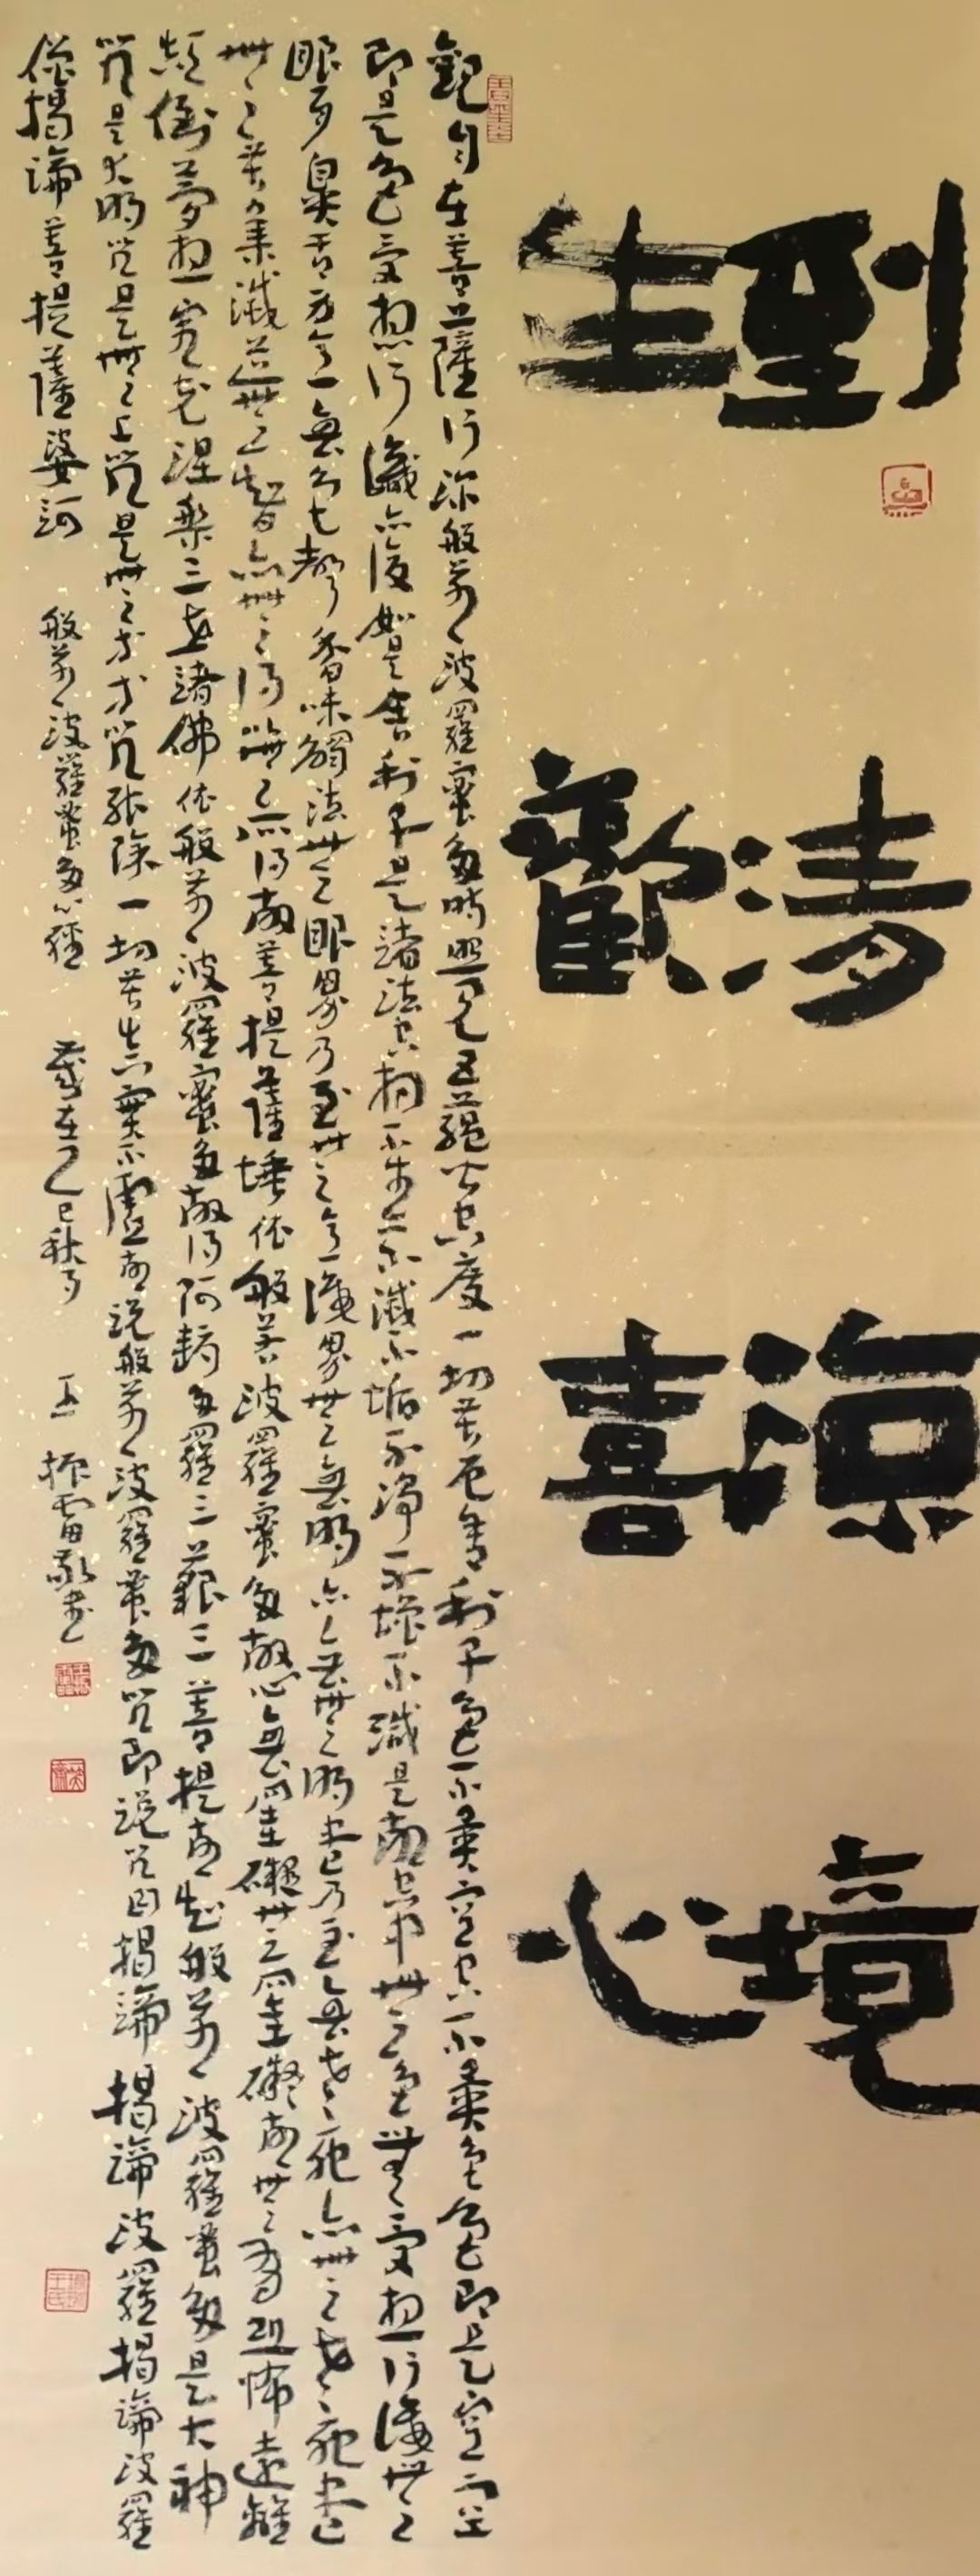 到清涼境
生歡喜心
觀自在菩薩行深般若波羅蜜多時照見五蘊皆空度一切苦厄舍利子色不異空空不異色色即是空空
即是色受想行識亦復如是舍利子是諸法空相不生不滅不垢不淨不增不減是故空中無色無受想行識無
眼耳鼻舌身意無色聲香味觸法無眼界乃至無意識界無無明亦無無明盡乃至無老死亦無老死盡
無苦集滅道無智亦無得無所得故菩提薩埵依般若波羅蜜多故心無罣礙無罣礙故無有恐怖遠離
顛倒夢想究竟涅槃三世諸佛依般若波羅蜜多故得阿耨多羅三藐三菩提故知般若波羅蜜多是大神
咒是大明咒是無上咒是無等等咒能除一切苦真實不虛故說般若波羅蜜多咒即說咒曰揭諦揭諦波羅揭諦波羅
僧揭諦菩提薩婆訶 般若波羅蜜多心經 歲在乙巳秋月 王振雷敬書